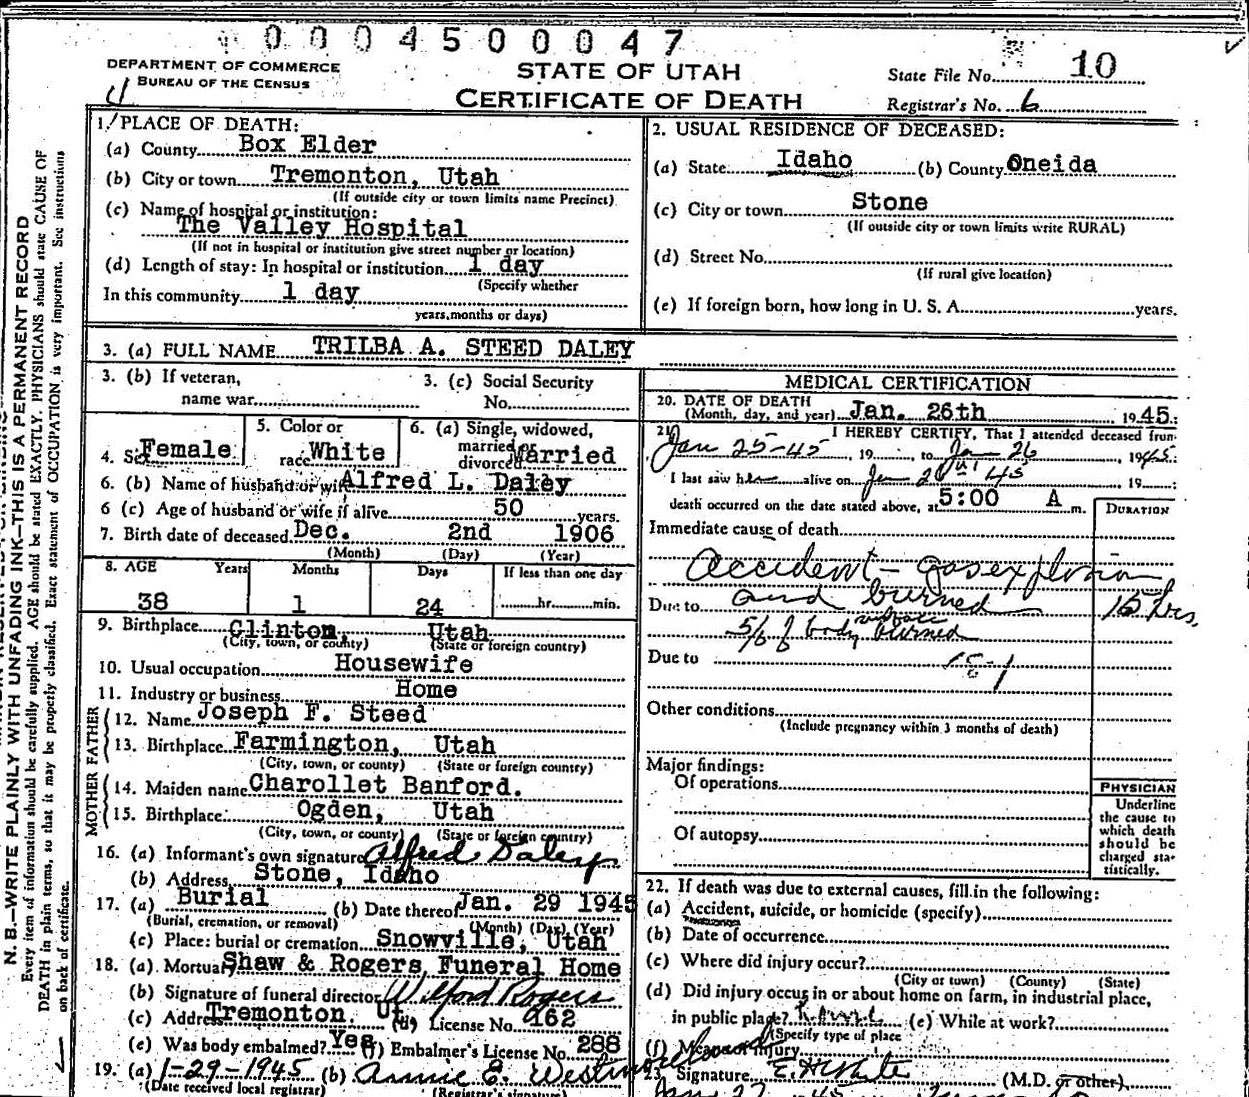 0004500047
DEPARTMENT OF COMMERCE
BUREAU OF THE CENSUS
STATE OF UTAH
CERTIFICATE OF DEATH
State File No. 10
Registrar's No. 6
N. B.—WRITE PLAINLY WITH UNFADING INK—THIS IS A PERMANENT RECORD
Every item of information should be carefully supplied. AGE should be stated EXACTLY. PHYSICIANS should state CAUSE OF
DEATH in plain terms, so that it may be properly classified. Exact statement of OCCUPATION is very important. See instructions
on back of certificate.
1. PLACE OF DEATH:
(a) County Box Elder
(b) City or town Tremonton, Utah
(If outside city or town limits name Precinct)
(c) Name of hospital or institution:
The Valley Hospital
(If not in hospital or institution give street number or location)
(d) Length of stay: In hospital or institution 1 day
(Specify whether
In this community 1 day
years, months or days)
2. USUAL RESIDENCE OF DECEASED:
(a) State Idaho (b) County Oneida
(c) City or town Stone
(If outside city or town limits write RURAL)
(d) Street No.
(If rural give location)
(e) If foreign born, how long in U. S. A. years.
3. (a) FULL NAME TRILBA A. STEED DALEY
3. (b) If veteran,
name war
3. (c) Social Security
No.
4. Sex Female
5. Color or
race White
6. (a) Single, widowed,
married or
divorced Married
6. (b) Name of husband or wife Alfred L. Daley
6 (c) Age of husband or wife if alive 50 years.
7. Birth date of deceased Dec. 2nd 1906
(Month) (Day) (Year)
8. AGE Years Months Days If less than one day
38 1 24 hr. min.
9. Birthplace Clinton, Utah
(City, town, or county) (State or foreign country)
10. Usual occupation Housewife
11. Industry or business Home
FATHER
12. Name Joseph F. Steed
13. Birthplace Farmington, Utah
(City, town, or county) (State or foreign country)
MOTHER
14. Maiden name Charollet Banford.
15. Birthplace Ogden, Utah
(City, town, or county) (State or foreign country)
16. (a) Informant's own signature Alfred Daley
(b) Address Stone, Idaho
17. (a) Burial (b) Date thereof Jan. 29 1945
(Burial, cremation, or removal) (Month) (Day) (Year)
(c) Place: burial or cremation Snowville, Utah
18. (a) Mortuary Shaw & Rogers Funeral Home
(b) Signature of funeral director Wilford Rogers
(c) Address Tremonton. Ut. (d) License No. 162
(e) Was body embalmed? Yes (f) Embalmer's License No. 288
19. (a) 1-29-1945 (b) Annie E. Westmoreland
(Date received local registrar) (Registrar's signature)
MEDICAL CERTIFICATION
20. DATE OF DEATH
(Month, day, and year) Jan. 26th 1945.
21. I HEREBY CERTIFY, That I attended deceased from
Jan 25-45, 19 , to Jan 26, 1945.
I last saw her alive on Jan 26 45 19
death occurred on the date stated above, at 5:00 A m.
DURATION
Immediate cause of death
Accident - gas explosion
Due to and burned 15 hrs.
5/6 of body surface burned
Due to 18-1
Other conditions
(Include pregnancy within 3 months of death)
Major findings:
Of operations
Of autopsy
PHYSICIAN
Underline
the cause to
which death
should be
charged sta-
tistically.
22. If death was due to external causes, fill in the following:
(a) Accident, suicide, or homicide (specify)
(b) Date of occurrence
(c) Where did injury occur?
(City or town) (County) (State)
(d) Did injury occur in or about home on farm, in industrial place,
in public place? (e) While at work?
(Specify type of place
(f) Means of injury
23. Signature E. H. White (M.D. or other)